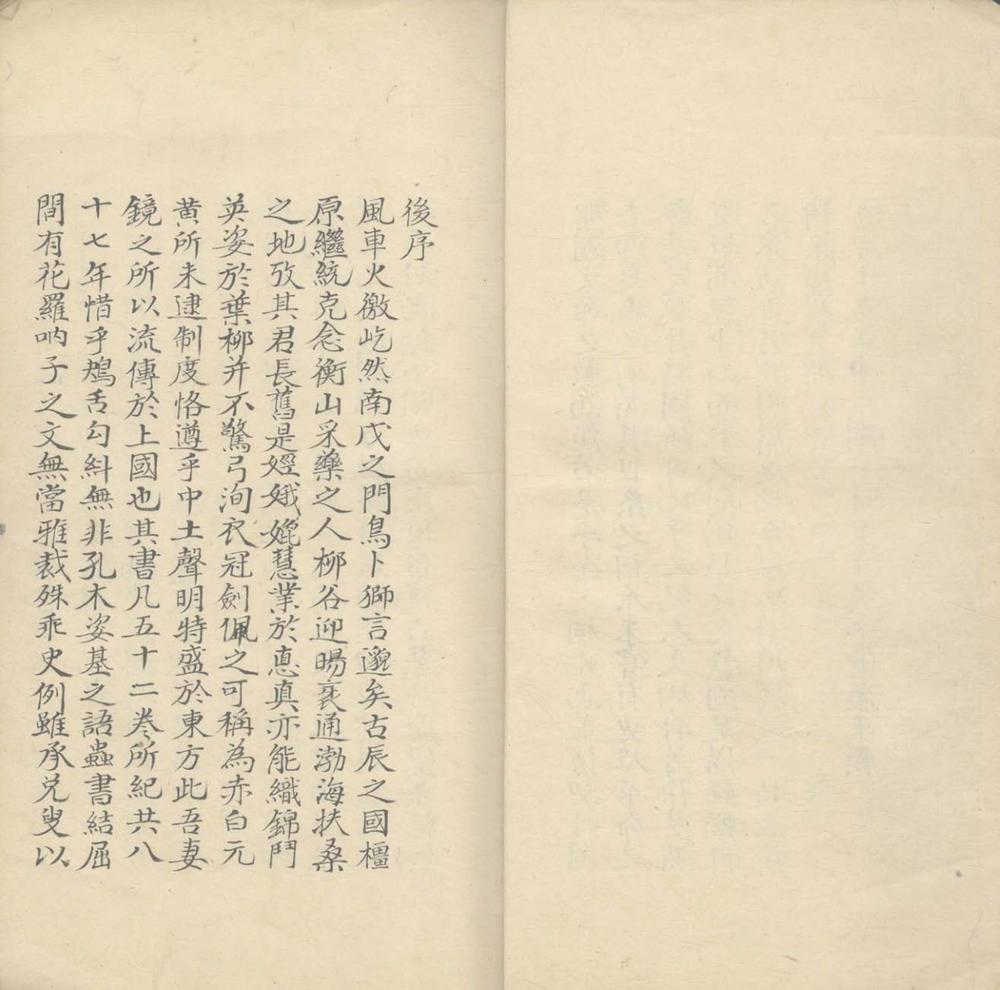 後序
風車火徼屹然南戊之門鳥卜獅言邈矣古辰之國橿
原繼統克念衡山采藥之人柳谷迎暘裵通渤海扶桑
之地攷其君長舊是娙娥嬔慧業於惪真亦能織錦鬥
英姿於葉柳并不驚弓洵衣冠劍佩之可稱為赤白元
黃所未逮制度恪遵乎中土聲明特盛於東方此吾妻
鏡之所以流傳於上國也其書凡五十二卷所紀共八
十七年惜乎鴂舌勾糾無非孔木姿基之語蟲書結屈
間有花羅吶子之文無當雅裁殊乖史例雖承兌叟以